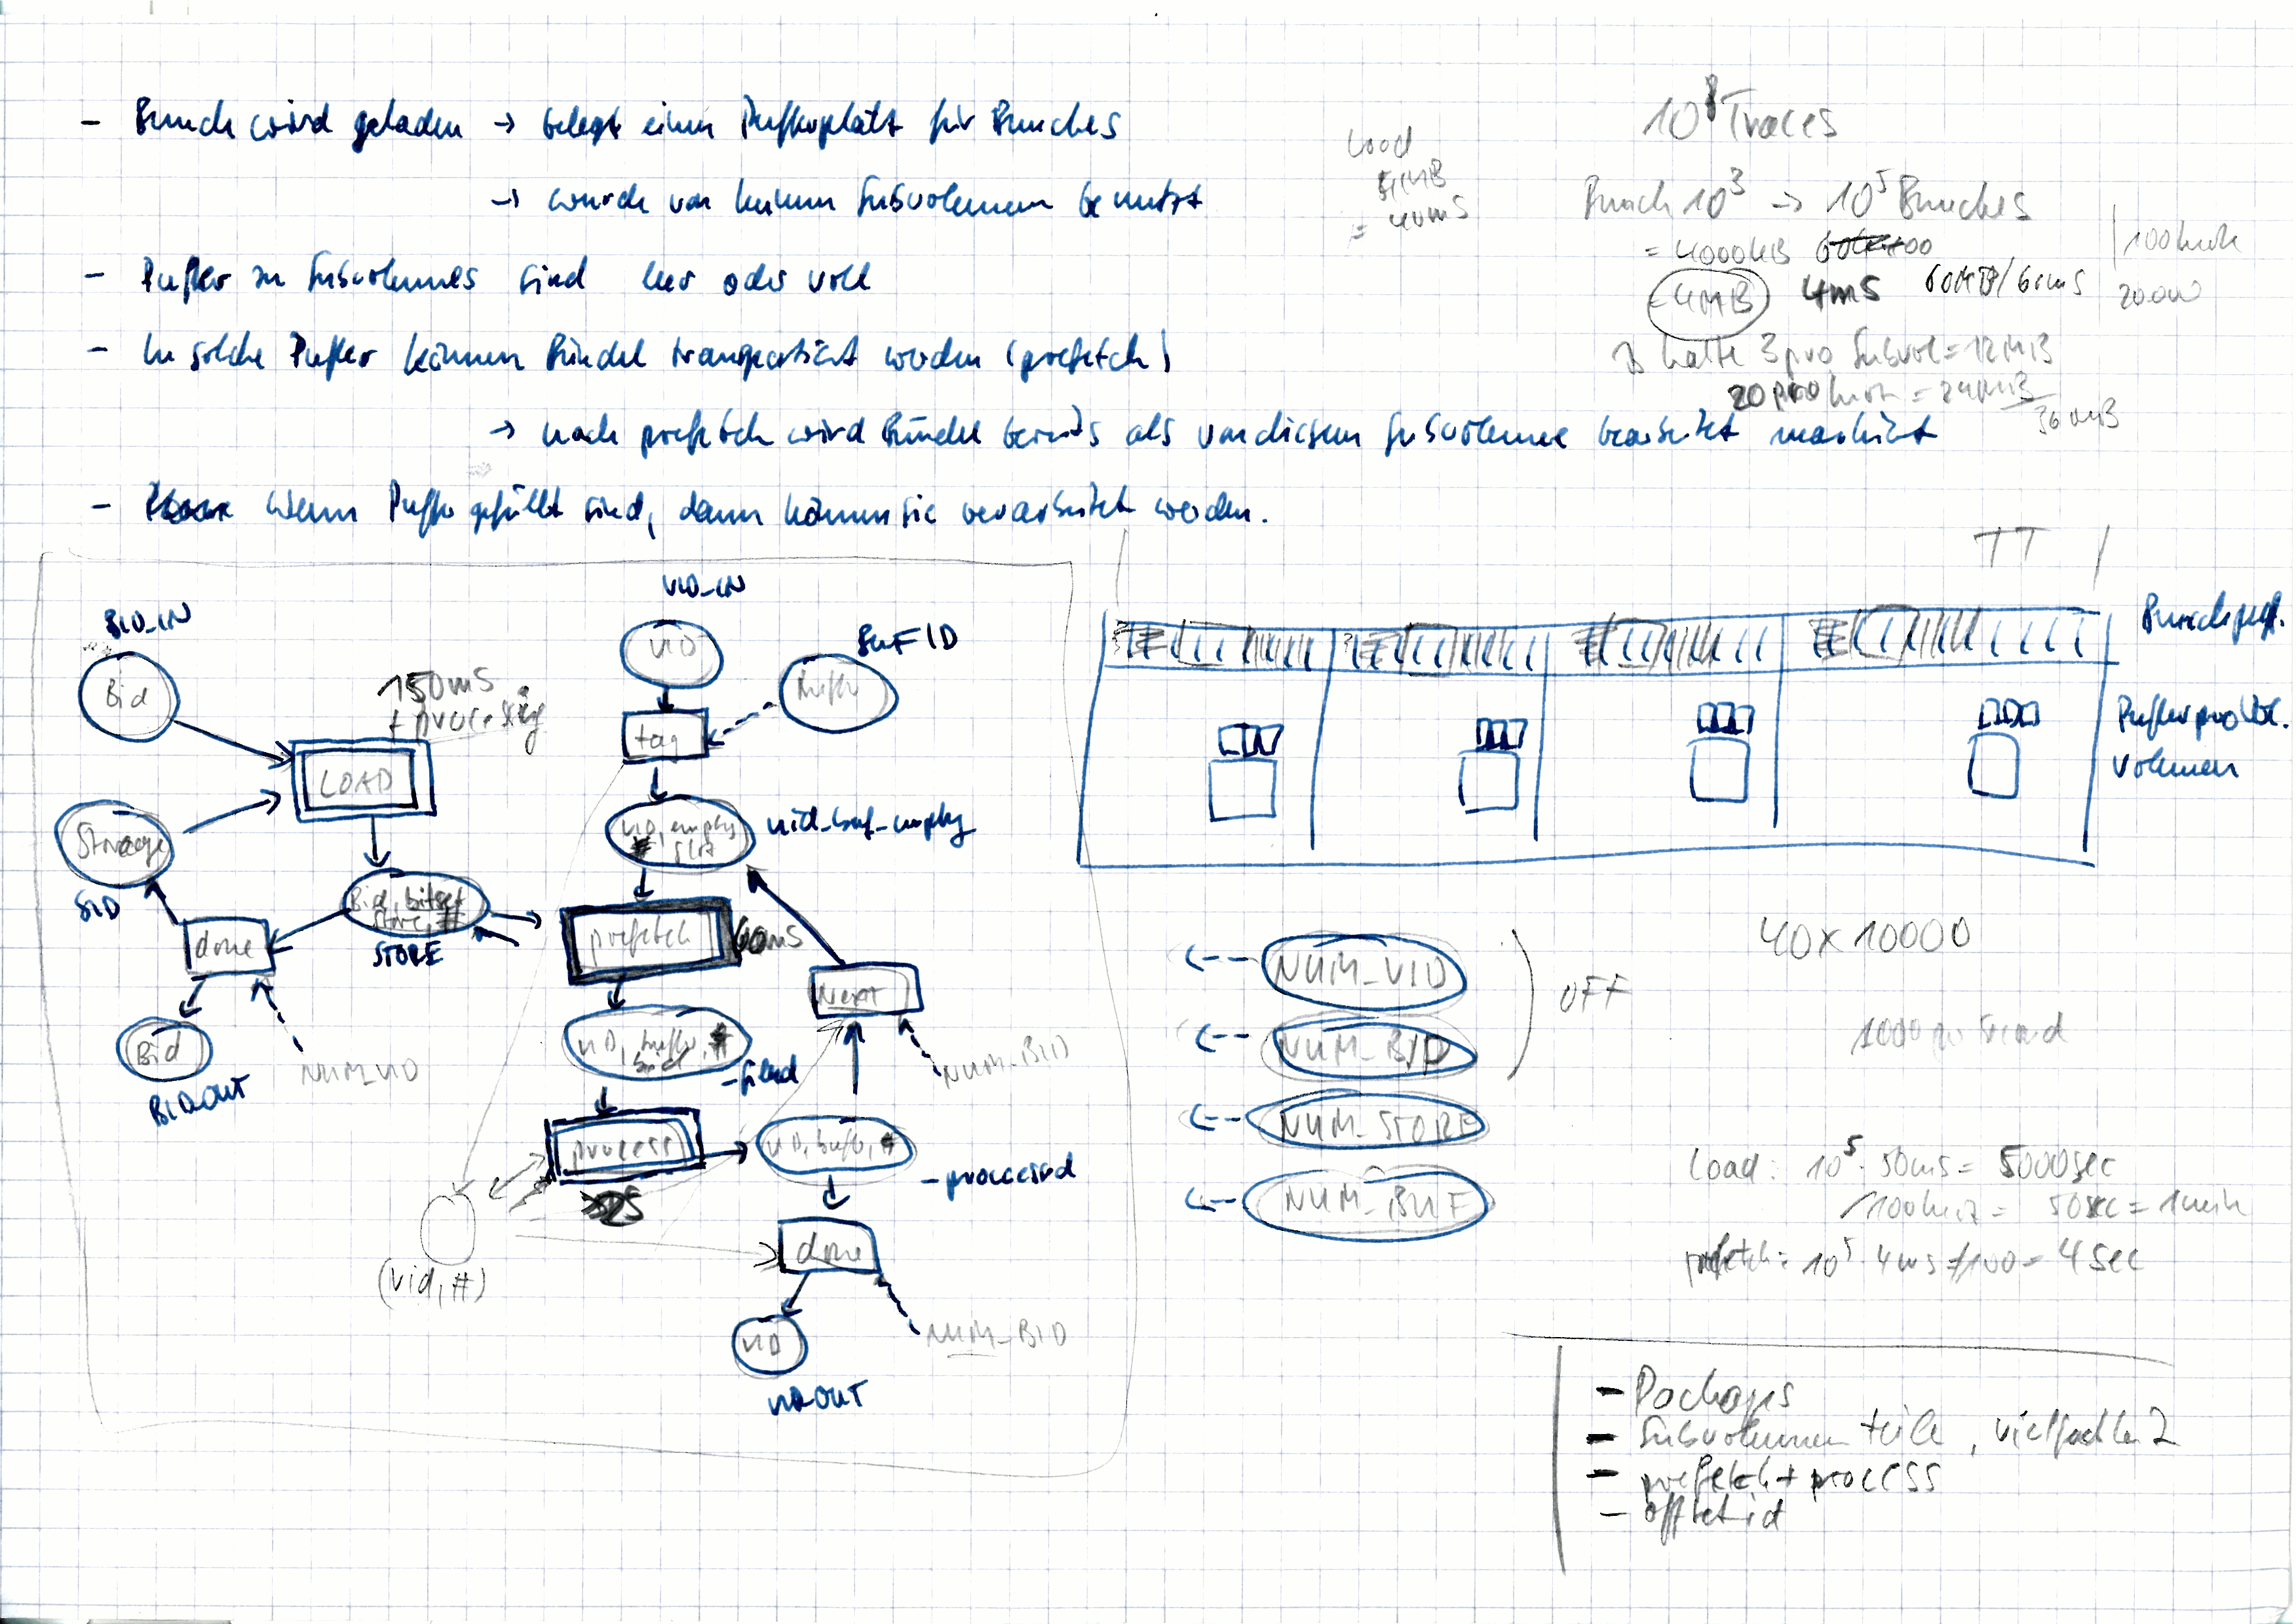 - Bunch wird geladen → belegt einen Pufferplatz für Bunches
→ wurde von keinem Subvolumen benutzt
- Puffer zu Subvolumes sind leer oder voll
- In solche Puffer können Bündel transportiert werden (prefetch)
→ nach prefetch wird Bündel bereits als von diesem Subvolume bearbeitet markiert
- wenn Puffer gefüllt sind, dann können sie verarbeitet werden.
Load
= 40ms
10⁸ Traces
Bunch 10³ → 10⁵ Bunches
= 4000KB
= 4MB 4ms 60MB/60ms
halte 3 pro Subvol = 12MB
20 pro = 24MB
36MB
BID_IN
Bid
150ms
+ processing
LOAD
Storage
SID
Bid, bitset
store, #
STORE
done
Bid
BID_OUT
NUM_VID
VID_IN
VID
BUFID
Puffer
tag
VID, empty
slot
vid_buf_empty
prefetch
60ms
VID, buffer, #
bid
-filled
Next
NUM_BID
process
VID, buffer, #
-processed
(vid, #)
done
NUM_BID
VID
VID_OUT
TT
Bunchpuff.
Puffer pro
Volumen
NUM_VID
NUM_BID
OFF
NUM_STORE
NUM_BUF
40x10000
Load: 10⁵ · 50ms = 5000sec
= 50sec = 1min
prefetch: 10⁵ · 4ms /100 = 4sec
- Packages
- Subvolumen teile, vielfache 2
- prefetch + process
- offset id